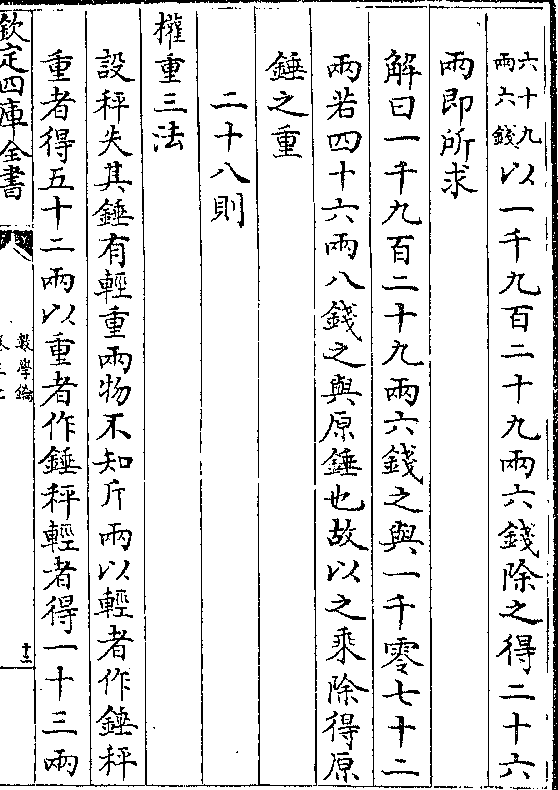 六十九
兩六錢以一千九百二十九兩六錢除之得二十六
兩即所求
解曰一千九百二十九兩六錢之與一千零七十二
兩若四十六兩八錢之與原錘也故以之乘除得原
錘之重
二十八則
權重三法
設秤失其錘有輕重兩物不知斤兩以輕者作錘秤
重者得五十二兩以重者作錘秤輕者得一十三兩
欽定四庫全書
數學鑰
十二